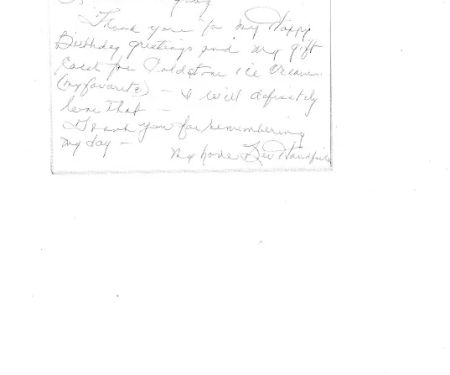 Thank you for my Happy
Birthday greetings and my gift
card for Coldstone ice cream
(my favorite) - I will definitely
love that -
Thank you for remembering
my day -
My love Bev